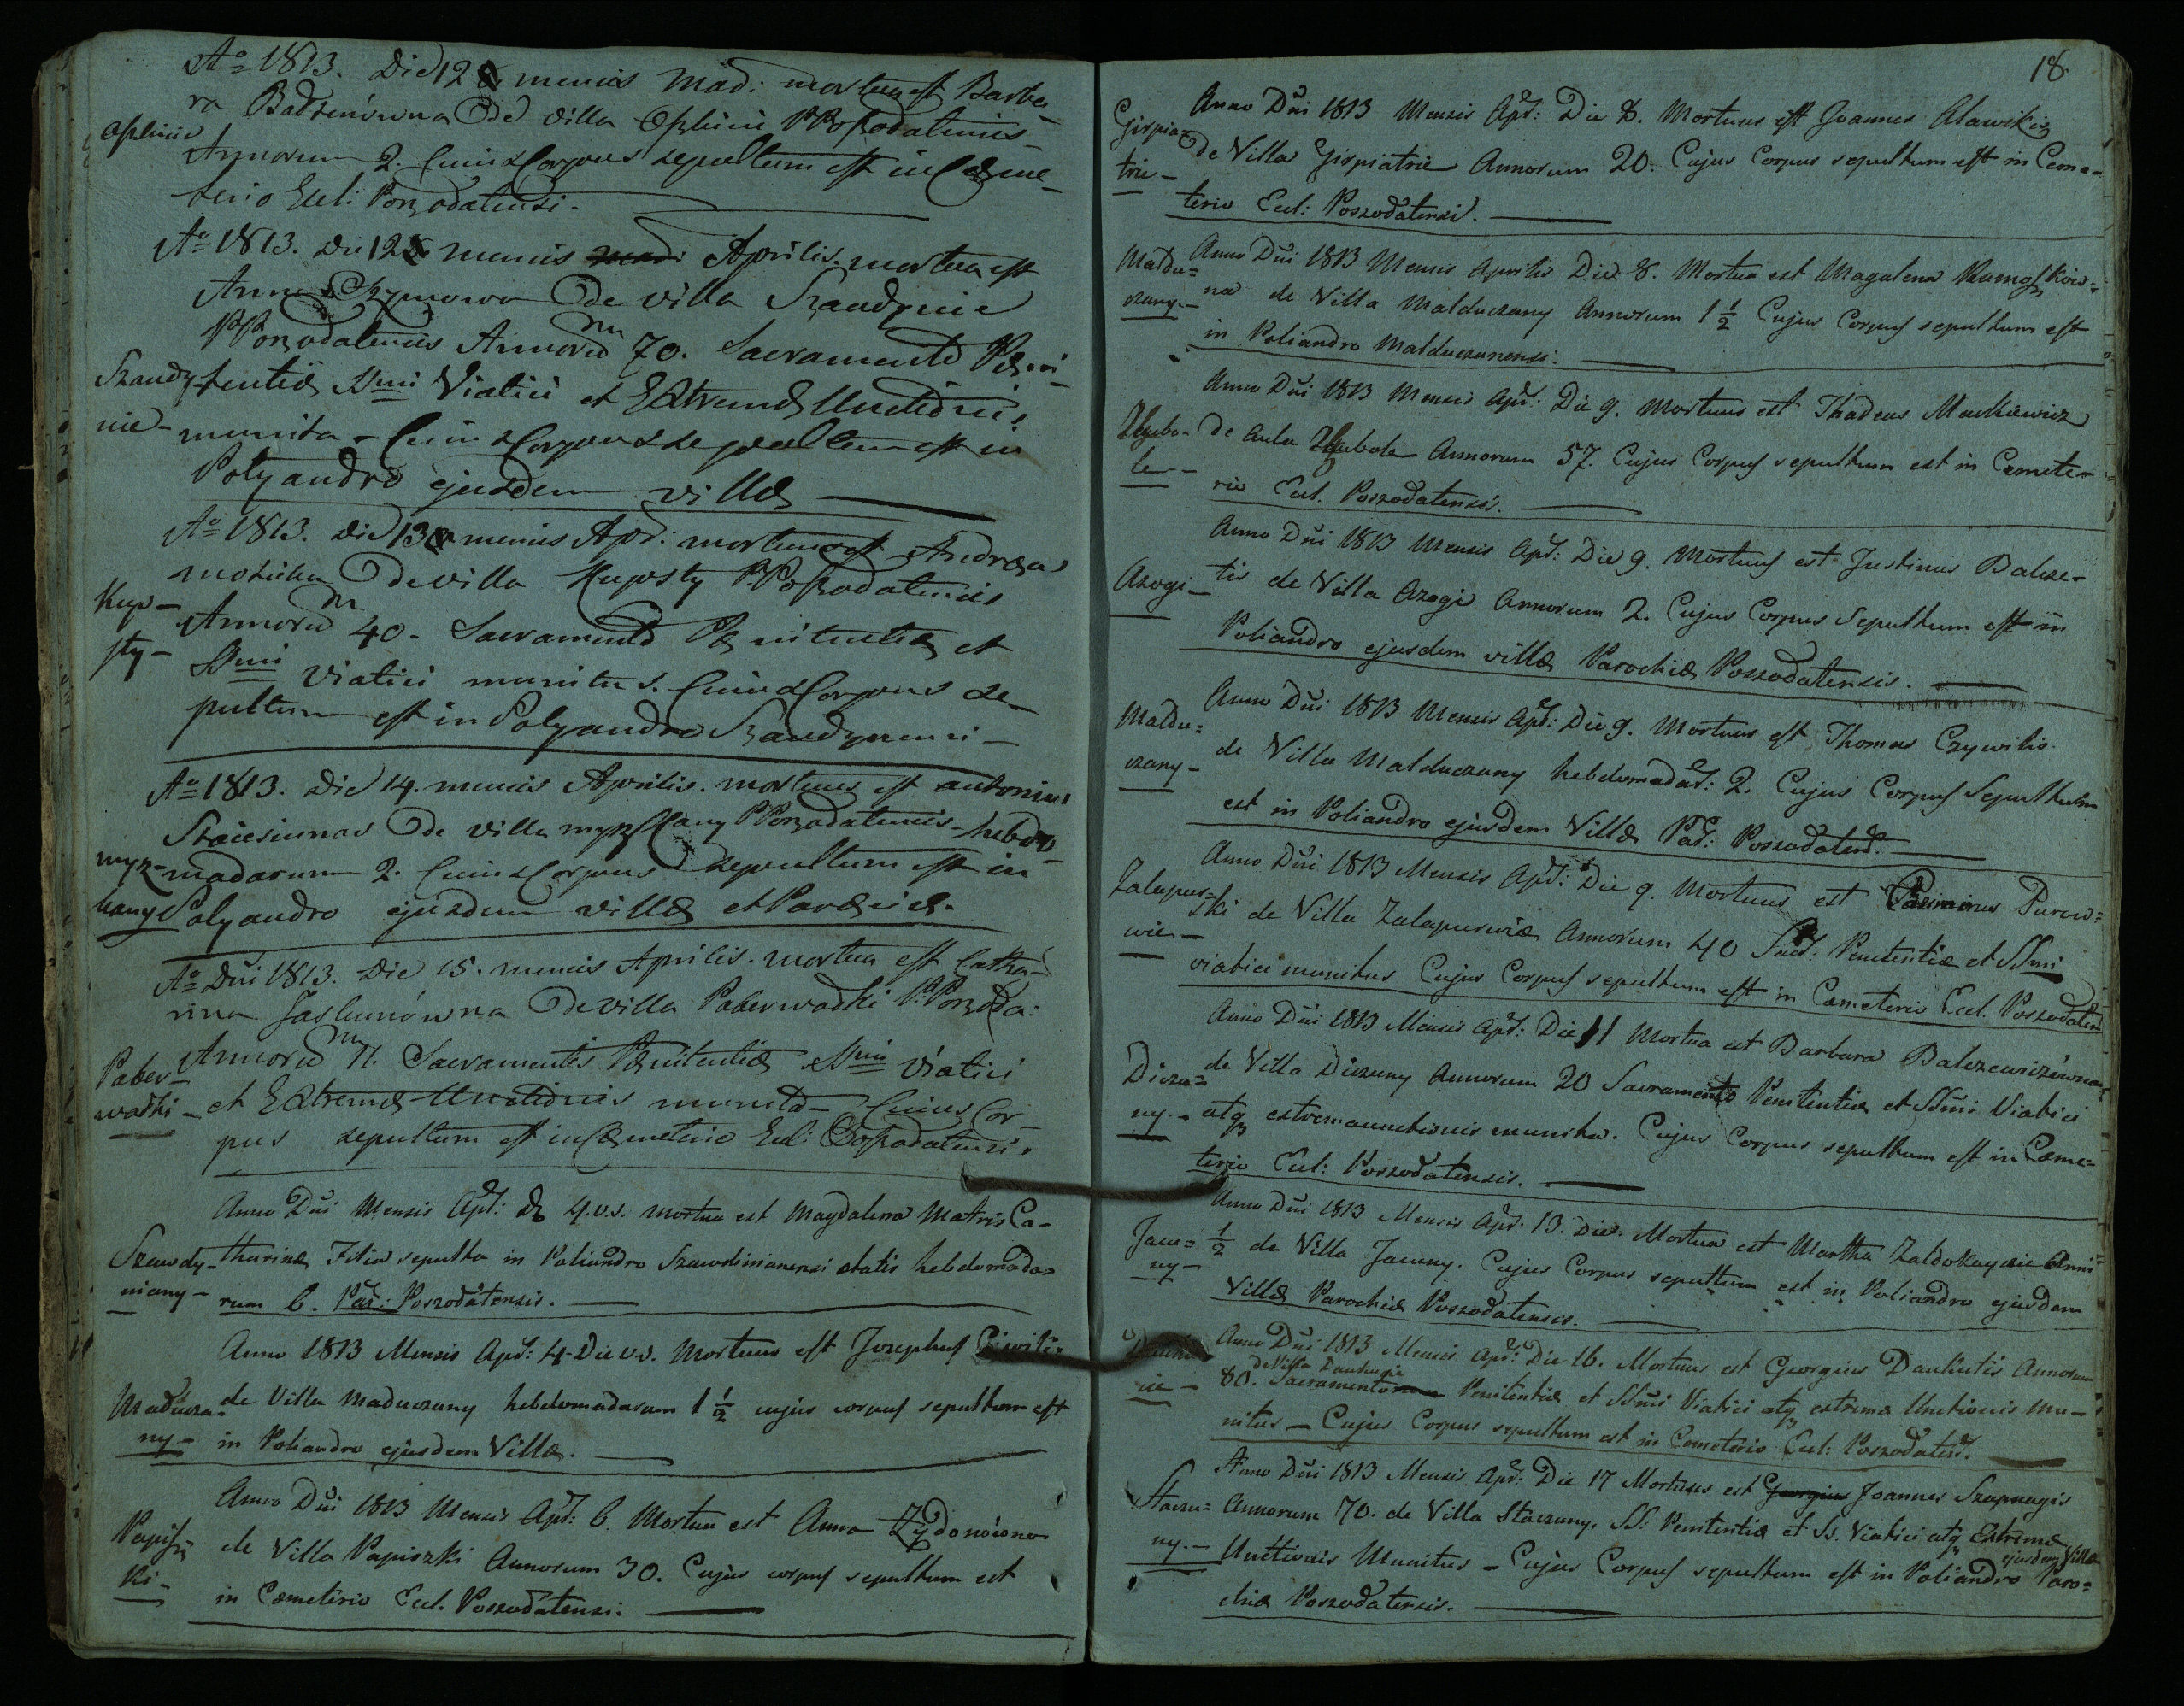 Aº 1813. Die 12 mensis Mad: mortua est Barba-
ra Badzenówna De villa Oplinie PPoszodatensis
Oplinie
Annorum 2. Cuius Corpus sepultum est in Cæme-
terio Eccl: Poszodatensi.
Aº 1813. Die 12 mensis Aprilis. mortua est
Anna De villa Szaudynie
PPoszodatensis Annorum 70. Sacramento Pæni-
Szaudy-
nie-
tentiæ SSmi Viatici et Extremæ Unctionis
munita - Cuius Corpus sepultum est in
Polyandro ejusdem villæ
Aº 1813. Die 13 mensis Apr: mortuus est Andreas
De villa Kupsty P.Poszodatensis
Kup-
sty-
Annorum 40. Sacramento Pænitentiæ et
SSmi Viatici munitus. Cuius Corpus se-
pultum est in Polyandro Szaudynensi-
Aº 1813. Die 14. mensis Aprilis. mortuus est Antonius
De villa PPoszodatensis hebdo-
madarum 2. Cuius Corpus sepultum est in
Polyandro ejusdem villæ et Paræciæ.
Aº Dñi 1813. Die 15. mensis Aprilis. mortua est Catha-
rina Jaskunówna De villa Poberwadki P.Poszoda:
Pober-
wadki
Annorum 11. Sacramentis Pænitentiæ SSmi Viatici
et Extremæ Unctionis munita- Cuius Cor-
pus sepultum est in Cæmeterio Eccl: Poszodatensi.
Anno Dñi Mensis Apr: 4.v.s. mortua est Magdalena Matris Ca-
Szawdy-
niany-
tharinæ Filia sepulta in Poliandro Szawdinianensi ætatis hebdomada=
rum 6. Par: Poszodatensis.
Anno 1813 Mensis Apr: 4 Die v.s. Mortuus est Josephus
Maducza-
ny-
de Villa Maduczany hebdomadarum 1 1/2 cujus corpus sepultum est
in Poliandro ejusdem Villæ.
Anno Dñi 1813 Mensis Apr: 6. Mortua est Anna Zydonówna
Papisz-
ki-
de Villa Papiszki Annorum 30. Cujus corpus sepultum est
in Cæmeterio Eccl. Poszodatensi.
18.
Anno Dñi 1813 Mensis Apr: Die 8. Mortuus est Joannes Alawikis
Girpia-
trie-
de Villa Girpiatrie Annorum 20. Cujus Corpus sepultum est in Ceme-
terio Eccl: Poszodatensi.
Anno Dñi 1813 Mensis Aprilis Die 8. Mortua est Magalena Rumoszkiow=
Maldu=
czany-
na de Villa Malduczany Annorum 1 1/2 Cujus Corpus sepultum est
in Poliandro Malduczanensi.
Anno Dñi 1813 Mensis Apr: Die 9. Mortuus est Thadeus Mackiewicz
de Aula Annorum 57. Cujus Corpus sepultum est in Cæmete-
rio Eccl. Poszodatensis.
Anno Dñi 1813 Mensis Apr: Die 9. Mortuus est Justinus Balcze-
Azogi-
tis de Villa Azogi Annorum 2. Cujus Corpus sepultum est in
Poliandro ejusdem villæ Parochiæ Poszodatensis.
Anno Dñi 1813 Mensis Apr: Die 9. Mortuus est Thomas Czywilis
Maldu=
czany-
de Villa Malduczany hebdomadar: 2. Cujus Corpus Sepultum
est in Poliandro ejusdem Villæ Par: Poszodatens.
Anno Dñi 1813 Mensis Apr: Die 9. Mortuus est Casimirus Purow=
Zalapur=
wie-
ski de Villa Zalapurwie Annorum 40 Sacr: Penitentiæ et SSmi
viatici munitus Cujus Corpus sepultum est in Cæmeterio Eccl. Poszodaten
Anno Dñi 1813 Mensis Apr: Die 11 Mortua est Barbara Balczewiczówna
Diczu=
ny-
de Villa Diczuny Annorum 20 Sacramento Penitentiæ et SSmi Viatici
atq extremaunctionis munita. Cujus Corpus sepultum est in Cæme=
terio Eccl: Poszodatensis.
Anno Dñi 1813 Mensis Apr: 13. Die. Mortua est Martha Anni
Jacu=
ny-
1/2 de Villa Jacuny. Cujus Corpus sepultum est in Poliandro ejusdem
Villæ Parochiæ Poszodatensis.
Anno Dñi 1813 Mensis Apr: Die 16. Mortuus est Georgius Daukutis Annorum
de Villa
80. Sacramento Penitentiæ et SSmi Viatici atq extremæ Unctionis mu-
nitus - Cujus Corpus sepultum est in Cemeterio Eccl: Poszodatens.
Anno Dñi 1813 Mensis Apr: Die 17 Mortuus est Georgius Joannes Szapnagis
Staczu=
ny.-
Annorum 70. de Villa Staczuny. SS: Penitentiæ et Ss. Viatici atq Extremæ
ejusdem Villæ
Unctionis Munitus - Cujus Corpus sepultum est in Poliandro Paro=
chiæ Poszodatensis.